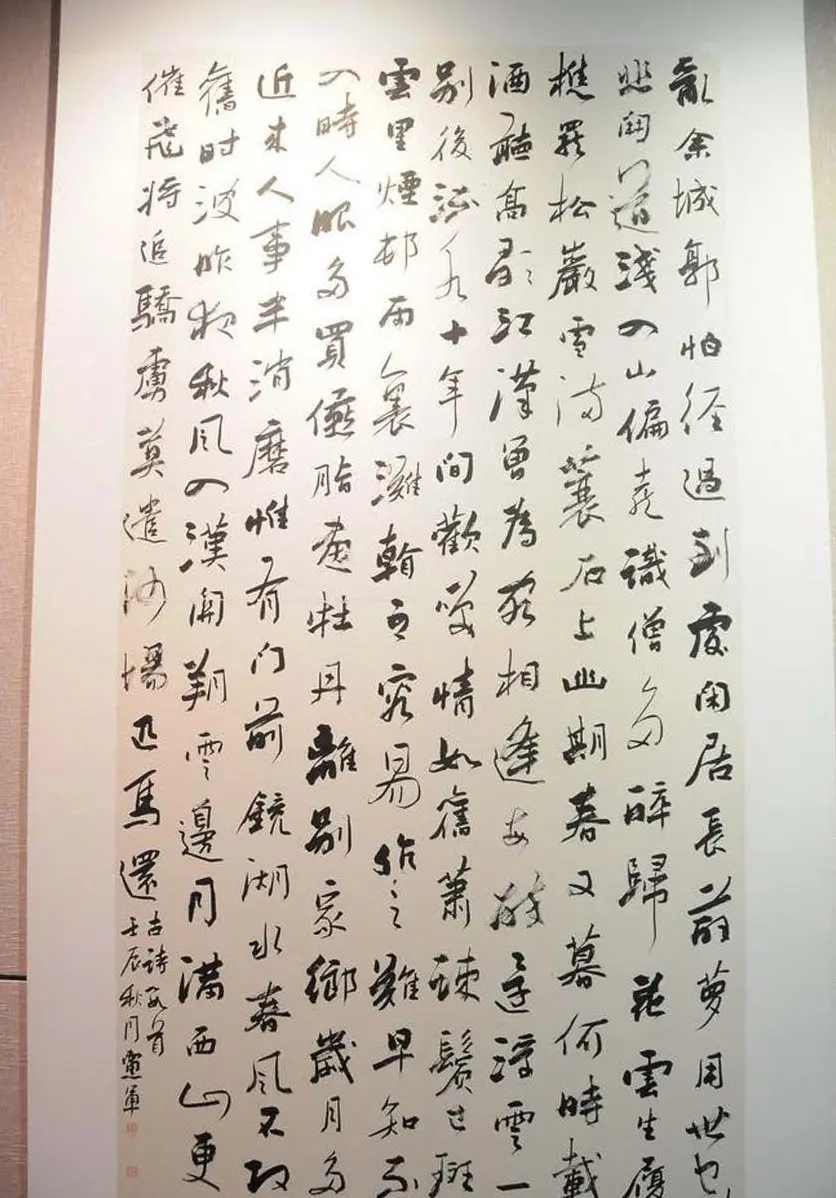 亂余城郭怕經過到處閑居長薜萝用世已
悲聞道淺入山偏喜識僧多醉歸花雲生履
樵罷松巖雪滿蓑石上幽期春又暮何時載
酒聽高歌江漢曾為客相逢每醉還浮雲一
別後流水十年間歡笑情如舊蕭疎鬢已斑
雲里煙邨雨裏灘看之容易作之難早知不
入時人眼多買燕脂畫牡丹離別家鄉歲月多
近來人事半消磨惟有門前鏡湖水春風不改
舊時波昨夜秋風入漢關朔雲邊月滿西山更
催飛將追驕虜莫遣沙場匹馬還
古詩數首
壬辰秋月憲軍